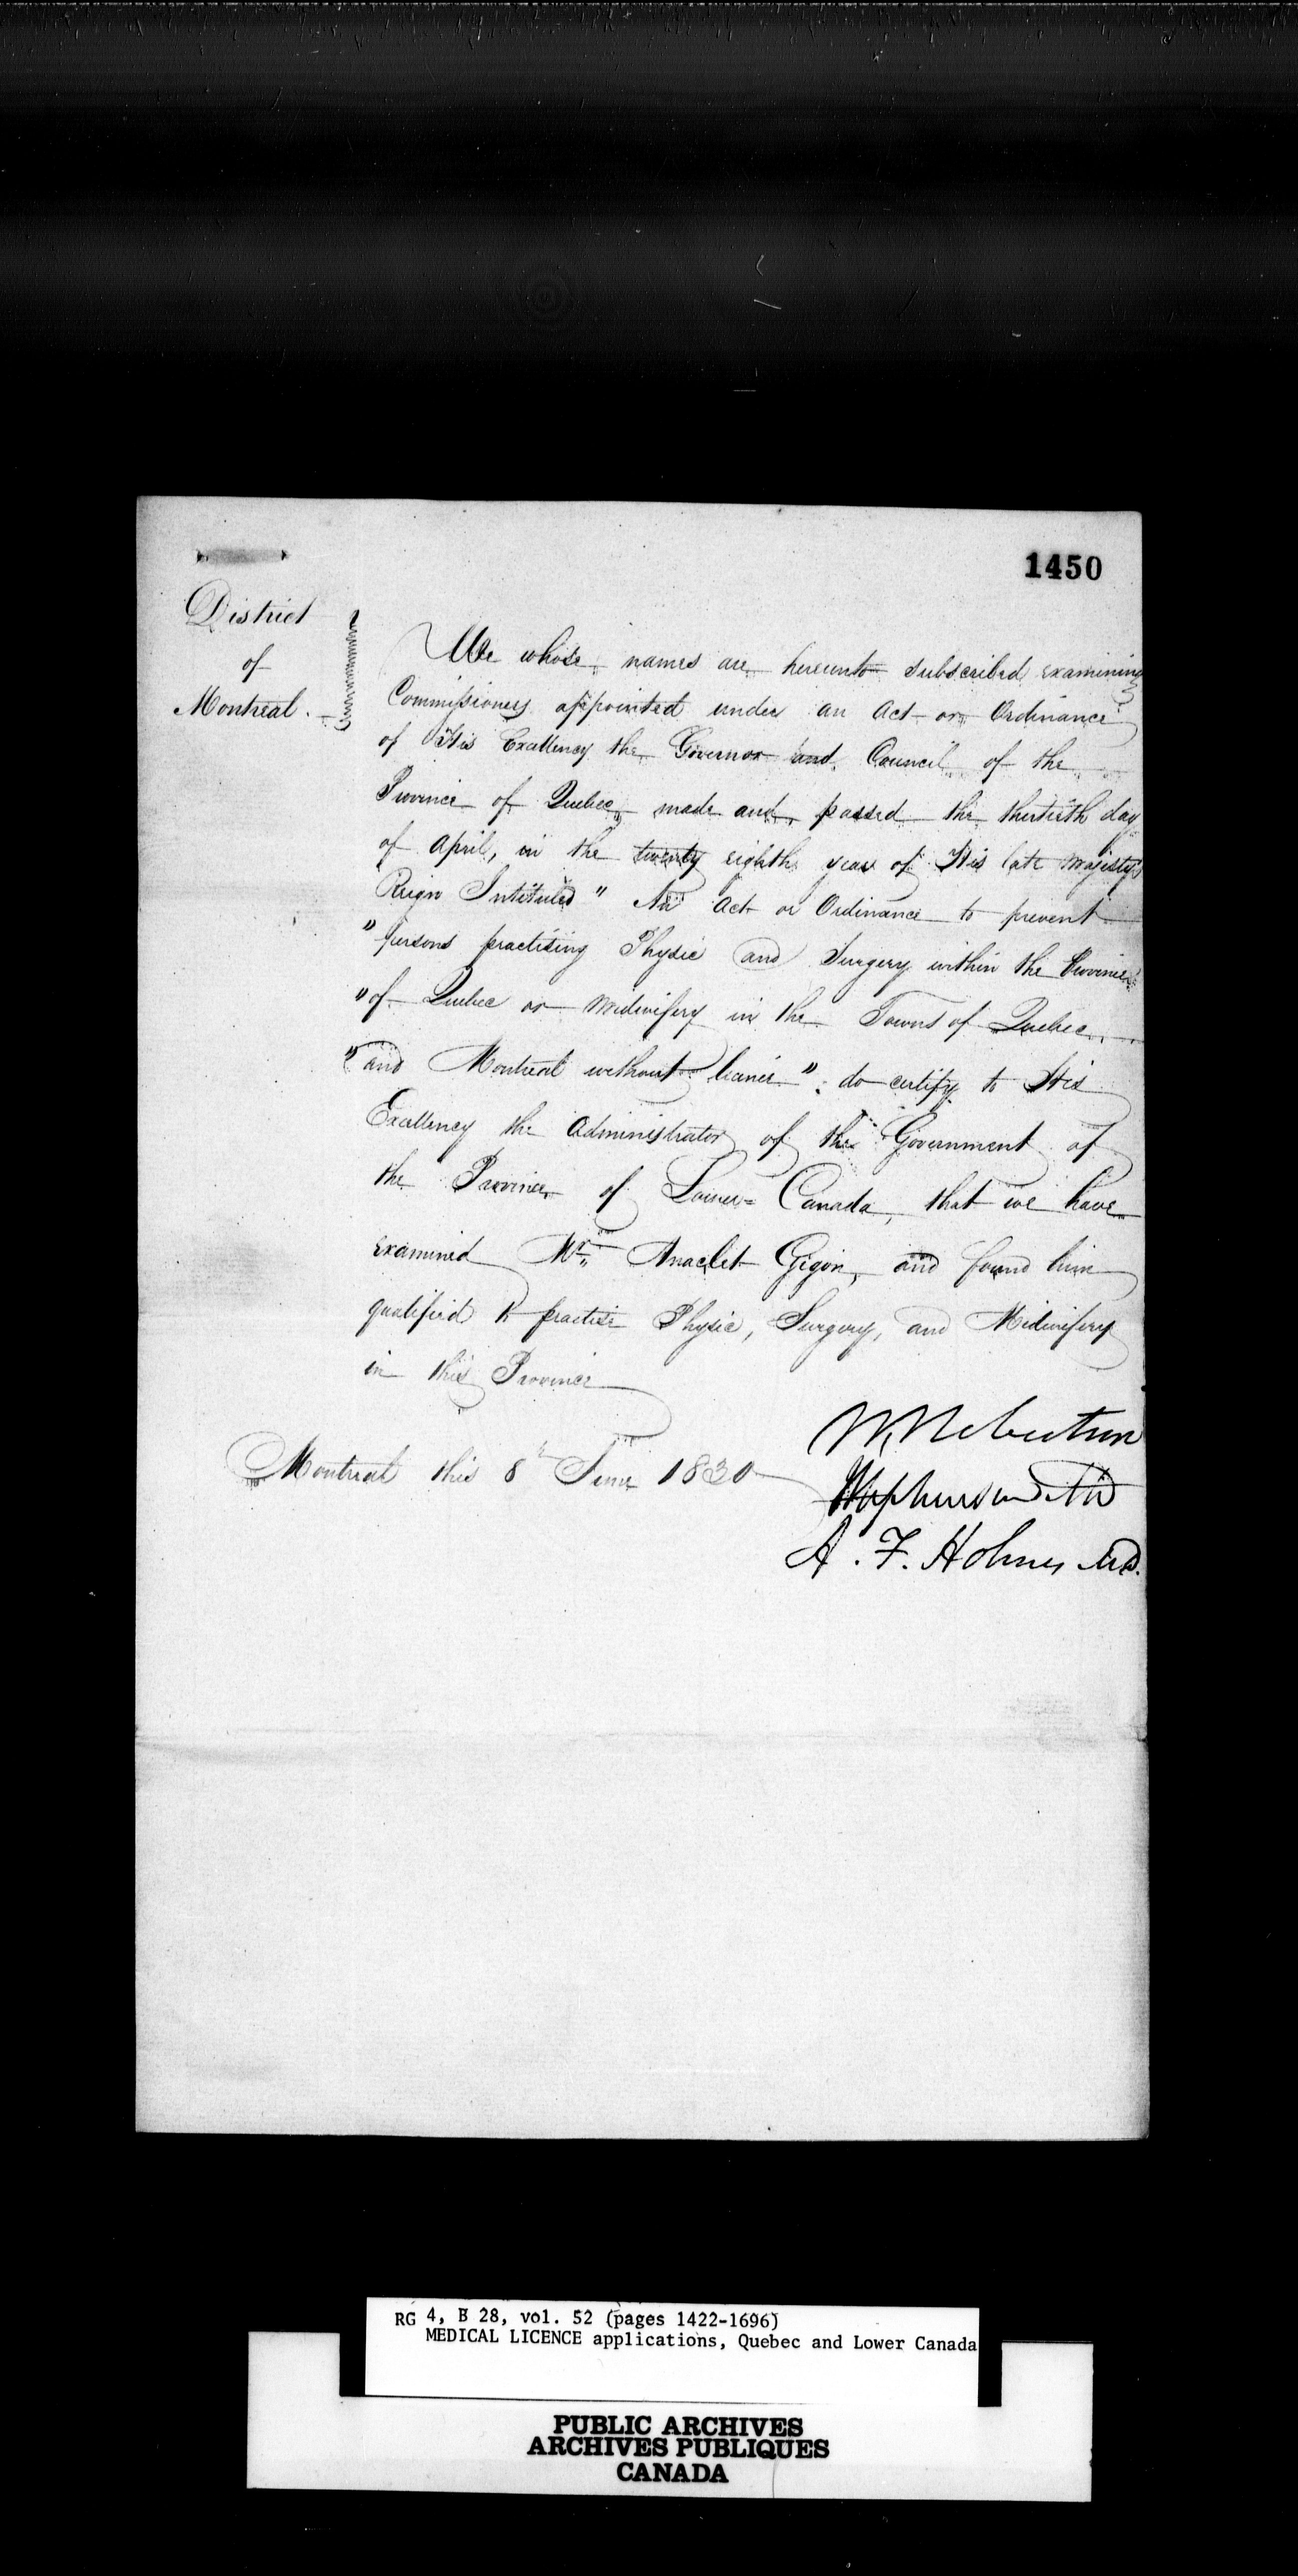 1450
District
of
Montreal.
We whose names are hereunto subscribed examining
Commissioners appointed under an Act or Ordinance
of His Excellency the Governor and Council of the
Province of Quebec, made and passed the thertieth day
of April, in the twenty eighth year of His late Majesty's
Reign Intituled " An Act or Ordinance to prevent
" persons practising Physic and Surgery within the Province
" of Quebec or Midwifery in the Towns of Quebec
" and Montreal without licence " do certify to His
Excellency the Administrator of the Government of
the Province of Lower-Canada, that we have
examined Mr. Anaclet Gigon, and found him
qualified to practise Physic, Surgery, and Midwifery
in this Province
Montreal this 8th June 1830
W. Robertson
Stephenson MD
A. F. Holmes M.D.
RG 4, B 28, vol. 52 (pages 1422-1696)
MEDICAL LICENCE applications, Quebec and Lower Canada
PUBLIC ARCHIVES
ARCHIVES PUBLIQUES
CANADA